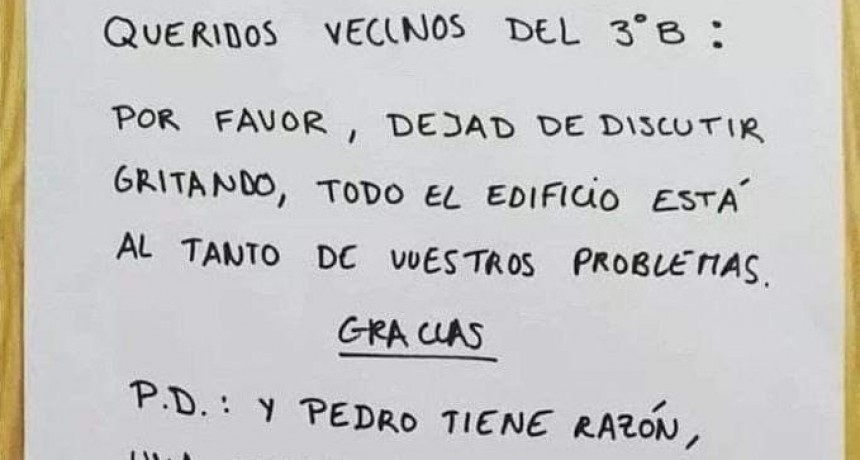 QUERIDOS VECINOS DEL 3°B:
POR FAVOR, DEJAD DE DISCUTIR
GRITANDO, TODO EL EDIFICIO ESTÁ
AL TANTO DE VUESTROS PROBLEMAS.
GRACIAS
P.D.: Y PEDRO TIENE RAZÓN,